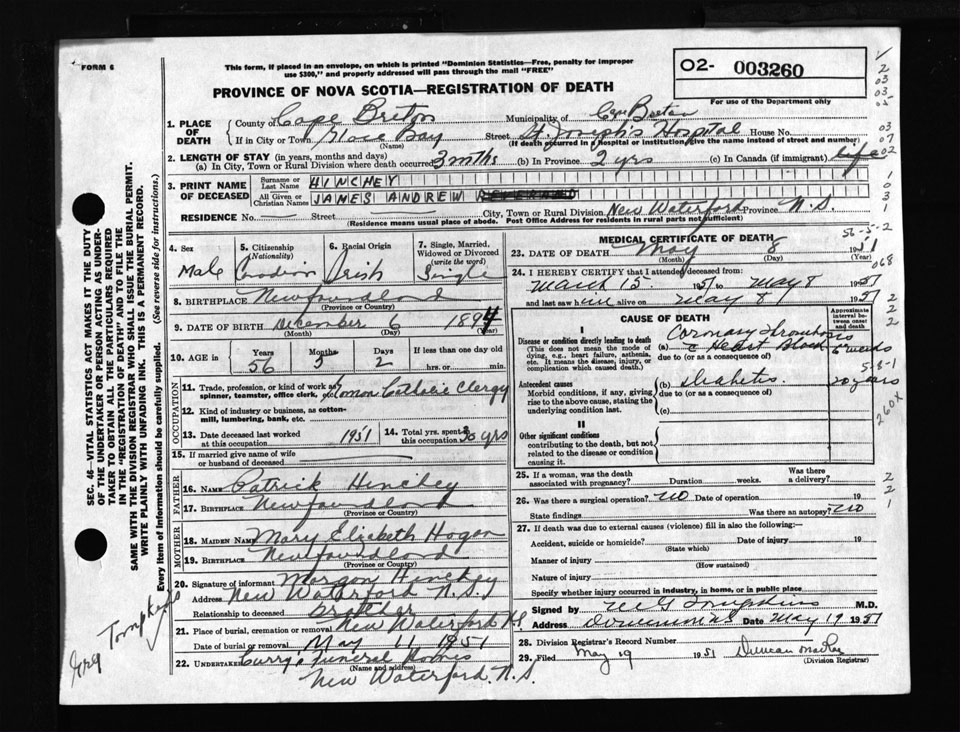 FORM 6
This form, if placed in an envelope, on which is printed "Dominion Statistics—Free, penalty for improper
use $300," and properly addressed will pass through the mail "FREE"
O2- 003260
For use of the Department only
PROVINCE OF NOVA SCOTIA—REGISTRATION OF DEATH
1. PLACE OF DEATH
County of Cape Breton Municipality of Cape Breton
If in City or Town Glace Bay (Name) Street St. Joseph's Hospital House No.
(If death occurred in a hospital or institution, give the name instead of street and number)
2. LENGTH OF STAY (in years, months and days)
(a) In City, Town or Rural Division where death occurred 3 mths (b) In Province 2 yrs (c) In Canada (if immigrant) life
3. PRINT NAME OF DECEASED
Surname or Last Name HINCHEY
All Given or Christian Names JAMES ANDREW
RESIDENCE No. — Street — City, Town or Rural Division New Waterford Province N.S.
(Residence means usual place of abode. Post Office Address for residents in rural parts not sufficient)
4. Sex Male
5. Citizenship (Nationality) Canadian
6. Racial Origin Irish
7. Single, Married, Widowed or Divorced (write the word) Single
8. BIRTHPLACE Newfoundland
(Province or Country)
9. DATE OF BIRTH December 6 1894
(Month) (Day) (Year)
10. AGE in Years 56 Months 5 Days 2 If less than one day hrs. or min.
OCCUPATION
11. Trade, profession, or kind of work as spinner, teamster, office clerk, etc. Roman Catholic Clergy
12. Kind of industry or business, as cotton-mill, lumbering, bank, etc.
13. Date deceased last worked at this occupation 1951
14. Total yrs. spent in this occupation 30 yrs
15. If married give name of wife or husband of deceased —
FATHER
16. Name Patrick Hinchey
17. BIRTHPLACE Newfoundland
(Province or Country)
MOTHER
18. MAIDEN NAME Mary Elizabeth Hogan
19. BIRTHPLACE Newfoundland
(Province or Country)
20. Signature of informant Morgan Hinchey
Address New Waterford N.S.
Relationship to deceased brother
21. Place of burial, cremation or removal New Waterford N.S.
Date of burial or removal May 11 1951
22. UNDERTAKER Curry's Funeral Homes
(Name and address)
New Waterford. N.S.
MEDICAL CERTIFICATE OF DEATH
23. DATE OF DEATH May 8 1951
(Month) (Day) (Year)
24. I HEREBY CERTIFY that I attended deceased from
March 15 1951 to May 8 1951
and last saw him alive on May 8 1951
CAUSE OF DEATH
Approximate interval between onset and death
I
Disease or condition directly leading to death
(This does not mean the mode of dying, e.g., heart failure, asthenia, etc. It means the disease, injury, or complication which caused death.)
(a) Coronary Thrombosis
c Heart Block 6 weeks
due to (or as a consequence of)
Antecedent causes
Morbid conditions, if any, giving rise to the above cause, stating the underlying condition last.
(b) Diabetes. 20 years
due to (or as a consequence of)
(c)
II
Other significant conditions
contributing to the death, but not related to the disease or condition causing it.
25. If a woman, was the death associated with pregnancy? Duration weeks. Was there a delivery?
26. Was there a surgical operation? no Date of operation 19
State findings Was there an autopsy? no
27. If death was due to external causes (violence) fill in also the following:—
Accident, suicide or homicide? Date of injury 19
(State which)
Manner of injury
(How sustained)
Nature of injury
Specify whether injury occurred in industry, in home, or in public place
Signed by M.D.
Address Dominion N.S. Date May 19 1951
28. Division Registrar's Record Number
29. Filed May 19 1951 Duncan
(Division Registrar)
SEC. 46—VITAL STATISTICS ACT MAKES IT THE DUTY
OF THE UNDERTAKER OR PERSON ACTING AS UNDER-
TAKER TO OBTAIN ALL THE PARTICULARS REQUIRED
IN THE "REGISTRATION OF DEATH" AND TO FILE THE
SAME WITH THE DIVISION REGISTRAR WHO SHALL ISSUE THE BURIAL PERMIT.
WRITE PLAINLY WITH UNFADING INK. THIS IS A PERMANENT RECORD.
Every item of Information should be carefully supplied. (See reverse side for instructions.)
Tompkins
56-5-2
068
5-8-1
260X